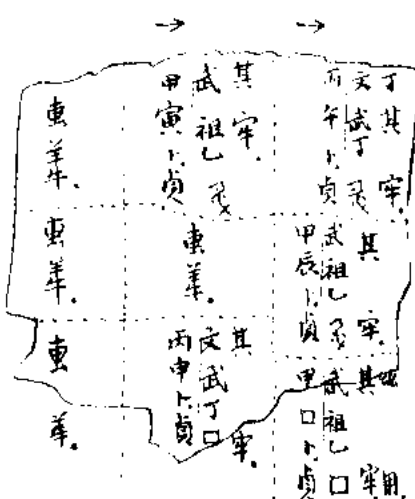 →
→
丙午卜貞
文武丁
丁其牢.
甲寅卜貞
武祖乙
其牢.
叀
甲辰卜貞
武祖乙
其牢.
叀
叀
甲□卜貞
武祖乙□
其牢
用
丙申卜貞
文武丁□
其牢.
叀